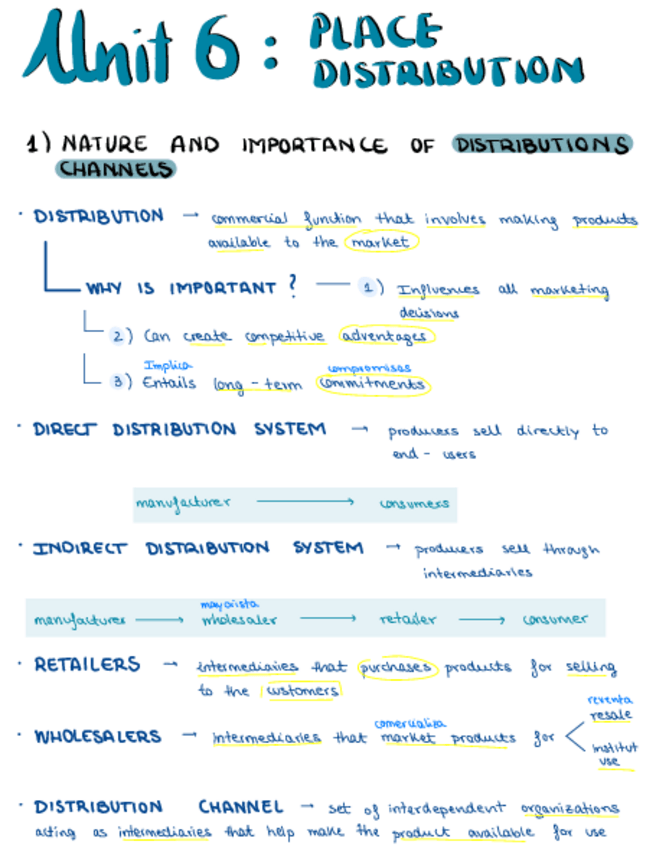 Unit 6: PLACE
DISTRIBUTION
1) NATURE AND IMPORTANCE OF DISTRIBUTIONS
CHANNELS
· DISTRIBUTION → commercial function that involves making products
available to the market
WHY IS IMPORTANT? — 1) Influences all marketing
decisions
2) Can create competitive advantages
Implica compromisos
3) Entails long-term commitments
· DIRECT DISTRIBUTION SYSTEM → producers sell directly to
end-users
manufacturer → consumers
· INDIRECT DISTRIBUTION SYSTEM → producers sell through
intermediaries
mayorista
manufacturer → wholesaler → retailer → consumer
· RETAILERS → intermediaries that purchases products for selling
to the customers
reventa
comercializa resale
· WHOLESALERS → intermediaries that market products for <
institut
use
· DISTRIBUTION CHANNEL → set of interdependent organizations
acting as intermediaries that help make the product available for use